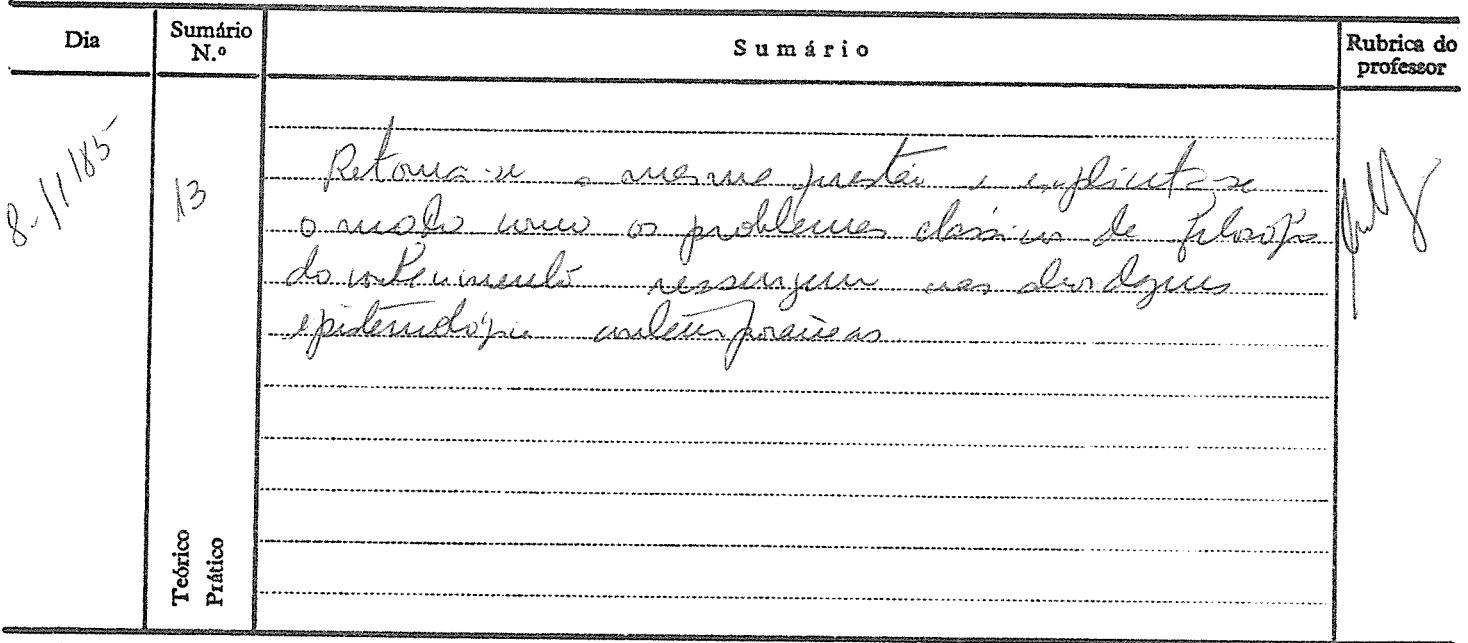 Dia
Sumário N.º
Sumário
Rubrica do professor
8-11/85
13
Retoma-se a mesma questão e explicita-se
o modo como os problemas clássicos de filosofia
do conhecimento ressurgem nas abordagens
epistemológicas contemporâneas.
Teórico
Prático